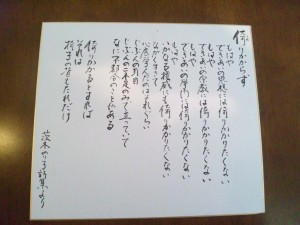 倚りかからず
もはや
できあいの思想には倚りかかりたくない
もはや
できあいの宗教には倚りかかりたくない
もはや
できあいの学問には倚りかかりたくない
もはや
いかなる権威にも倚りかかりたくない
ながく生きて
心底学んだのはそれぐらい
じぶんの耳目
じぶんの二本足のみで立っていて
なに不都合のことやある
倚りかかるとすれば
それは
椅子の背もたれだけ
茨木のり子詩集より